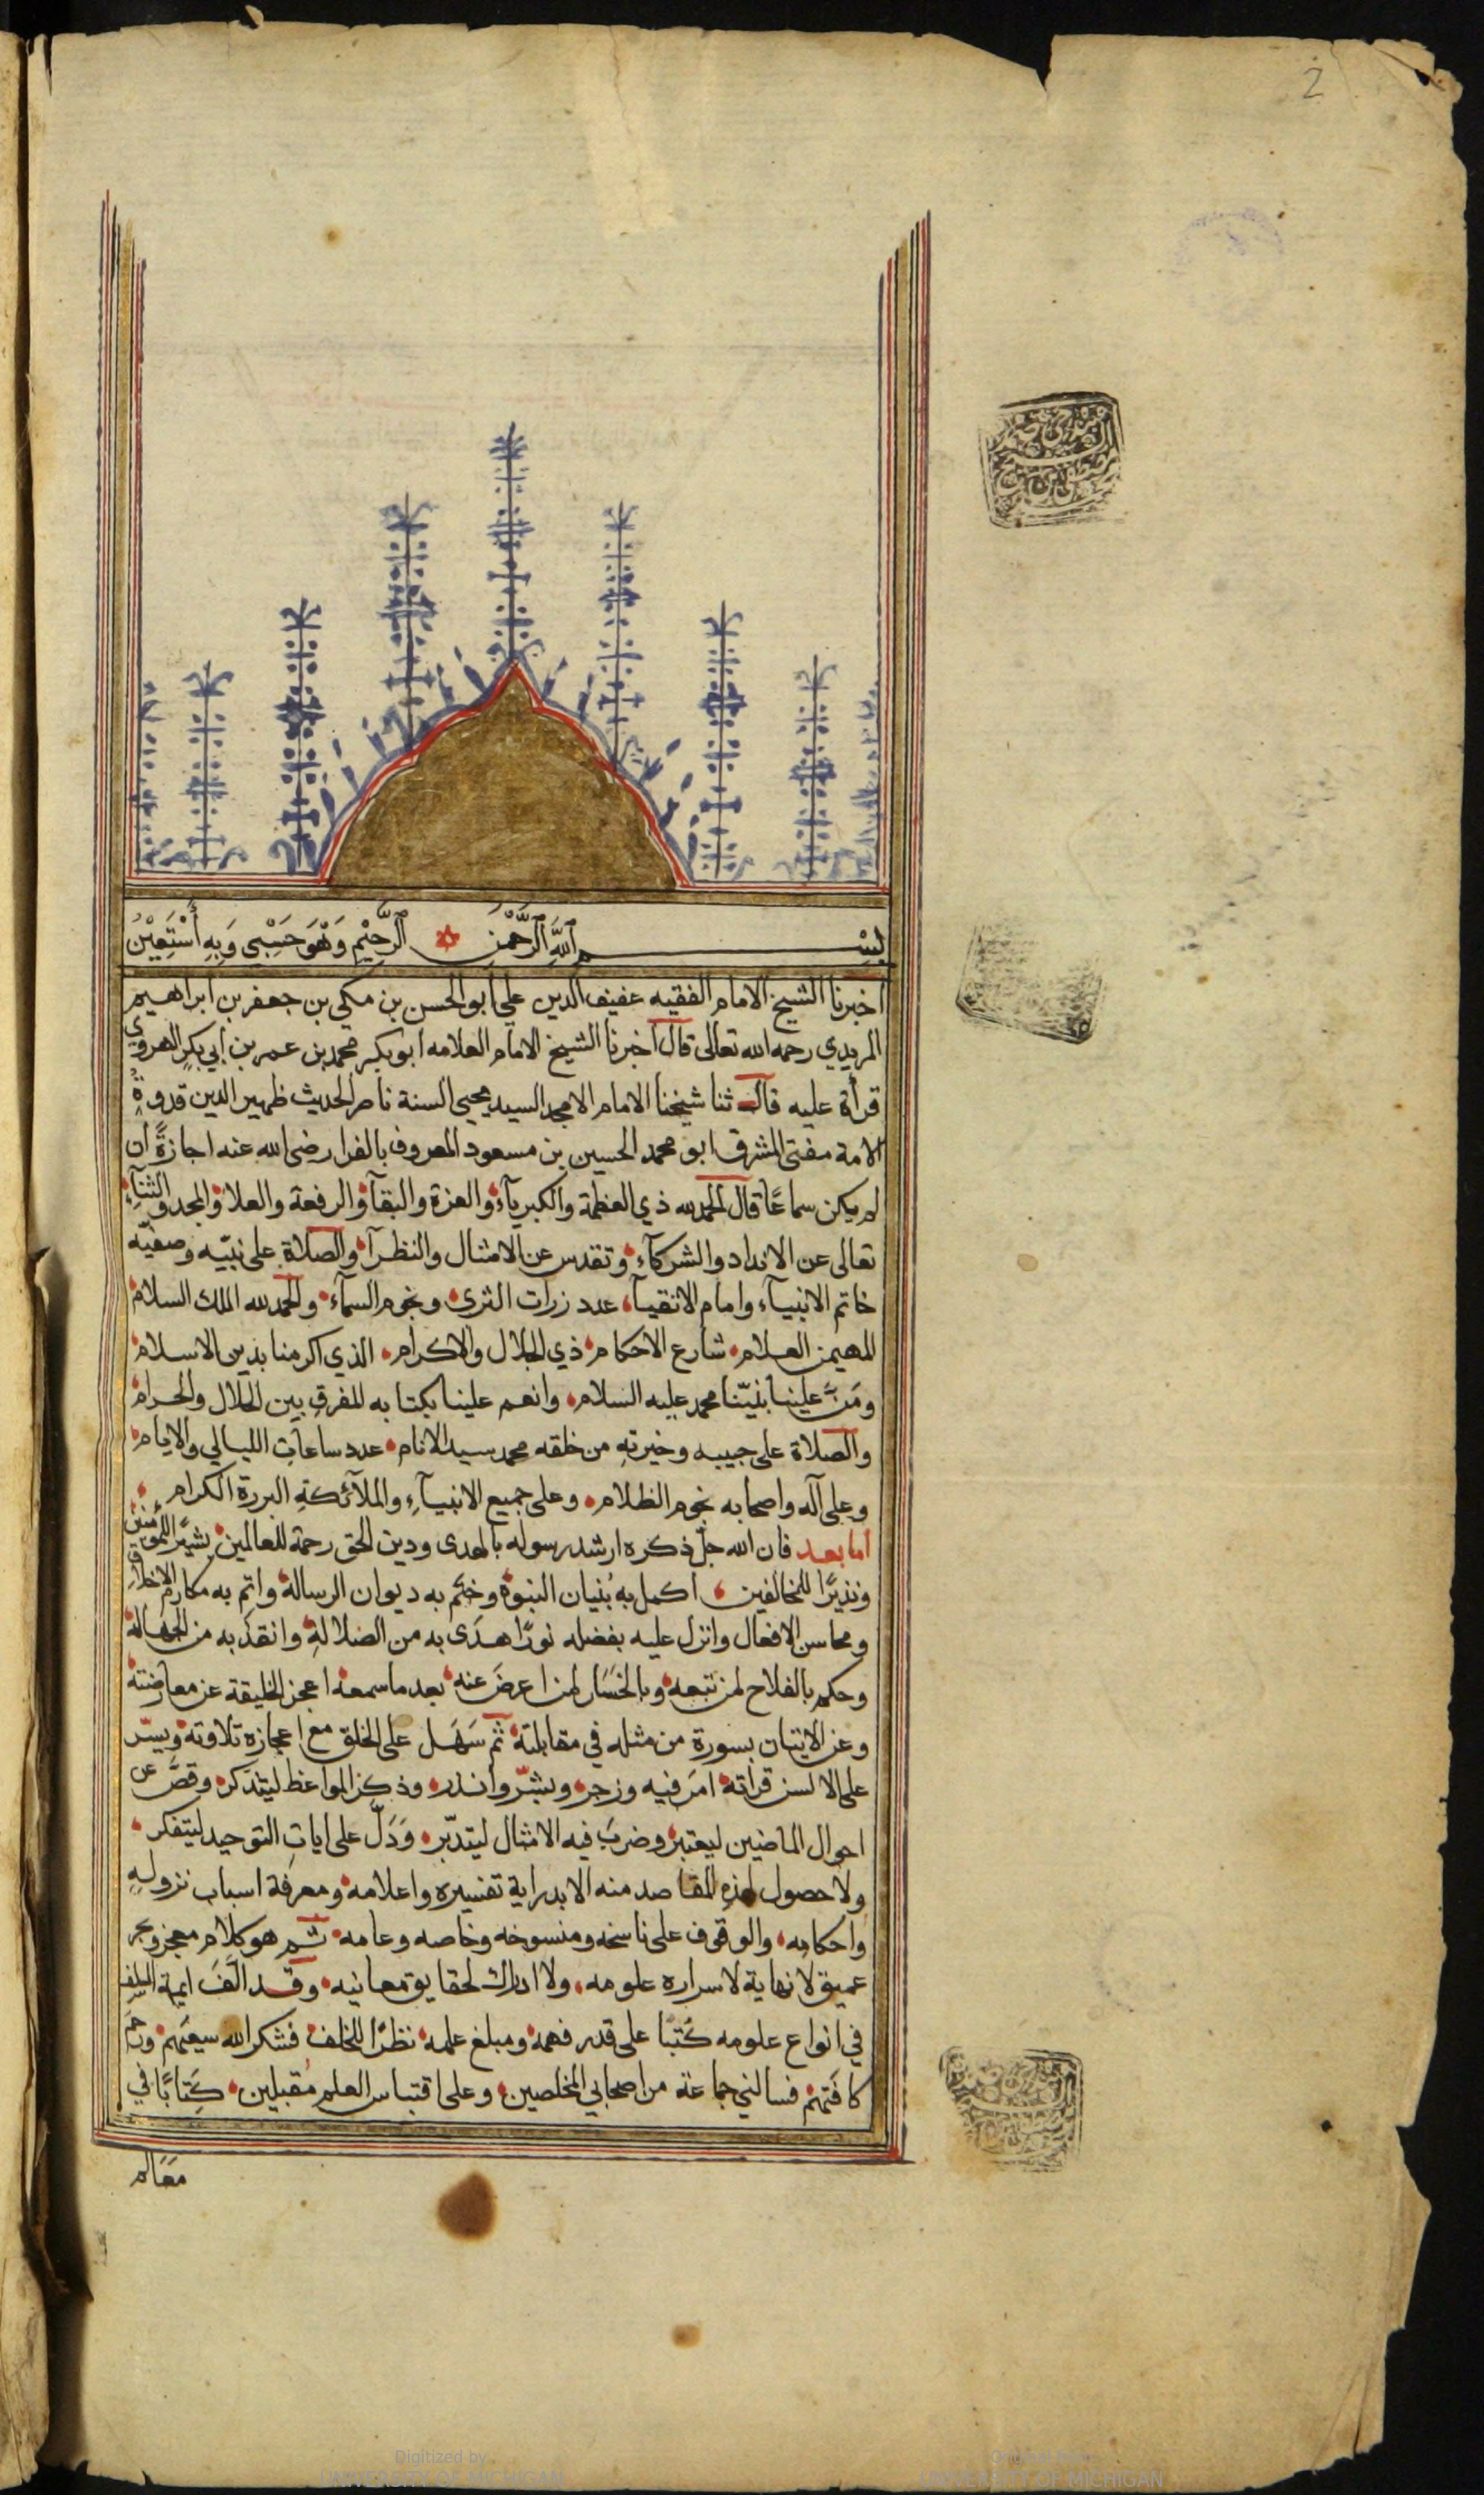 2
بسم الله الرحمن الرحيم وهو حسبي وبه أستعين
اخبرنا الشيخ الامام الفقيه عفيف الدين علي ابو الحسن بن مكي بن جعفر بن ابراهيم
المريدي رحمه الله تعالى قال اخبرنا الشيخ الامام العلامه ابو بكر محمد بن عمر بن ابي بكر الهروي
قرأة عليه قال ثنا شيخنا الامام الامجد السيد محيي السنة ناصر الحديث ظهير الدين قدوة
الامة مفتى المشرق ابو محمد الحسين بن مسعود المعروف بالفرا رضى الله عنه اجازةً ان
لم يكن سماعًا قال الحمد لله ذي العظمة والكبريآء والعزة والبقآء والرفعة والعلا والمجد والثنآء
تعالى عن الانداد والشركآء وتقدس عن الامثال والنظرآ والصلاة على نبيّه وصفيّه
خاتم الانبيآء وامام الاتقيآء عدد زرات الثرى ونجوم السمآء والحمد لله الملك السلام
المهيمن العلام شارع الاحكام ذي الجلال والاكرام الذي اكرمنا بدين الاسلام
ومَنَّ علينا بنبيّنا محمد عليه السلام وانعم علينا بكتابه المفرق بين الحلال والحرام
والصلاة على حبيبه وخيرته من خلقه محمد سيد الانام عدد ساعات الليالي والايام
وعلى آله واصحابه نجوم الظلام وعلى جميع الانبيآءِ والملآئكةِ البررة الكرام
اما بعد فان الله جلّ ذكره ارشد رسوله بالهدى ودين الحق رحمة للعالمين بشيرًا للمؤمنين
ونذيرًا للمخالفين اكمل به بُنيان النبوة وختم به ديوان الرسالة واتم به مكارم الاخلاق
ومحاسن الافعال وانزل عليه بفضله نورًا هدَى به من الضلالةِ وانقذ به من الجهالة
وحكم بالفلاح لمن تبعه وبالخَسَار لمن اعرضَ عنه بعد ما سمعه اعجز الخليقة عن معارضته
وعن الاتيان بسورة من مثله في مقابلته ثم سَهَل على الخلق مع اعجازه تلاوته ويسّر
على الالسن قرأته امَر فيه وزجر وبشّر وانذر وذكر المواعظ ليتذكر وقصّ عن
احوال الماضين ليعتبر وضربَ فيه الامثال ليتدبّر وَدَلّ على اياتِ التوحيد ليتفكر
ولا حصول لهذهِ المقاصد منه الا بدراية تفسيره واعلامه ومعرفة اسباب نزولهِ
واحكامه والوقوف على ناسخه ومنسوخه وخاصه وعامه ثم هو كلام معجز وبحر
عميق لا نهاية لاسراره علومه ولا ادراك لحقايق معانيه وقد الَّفَ ايمة السلف
في انواع علومه كُتبًا على قدر فهمه ومبلغ علمه نظرًا للخلف فشكر الله سعيَهم ورحم
كافّتهم فسالني جماعة من اصحابي المخلصين وعلى اقتباس العلم مُقبلين كِتابًا في
معالم
Digitized by
UNIVERSITY OF MICHIGAN
Original from
UNIVERSITY OF MICHIGAN